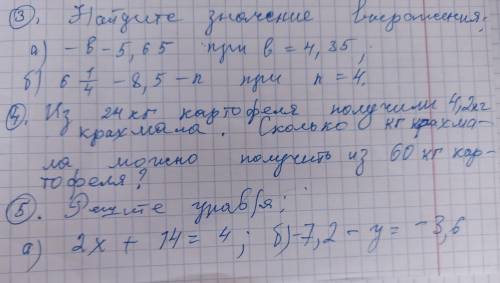 ③. Найдите значение выражения:
а) -в-5,65 при в = 4,35;
б) 6 1/4 - 8,5 - n при n = 4.
④. Из 24 кг картофеля получили 4,2 кг
крахмала. Сколько кг крахма-
ла можно получить из 60 кг кар-
тофеля?
⑤. Решите уравн/я:
а) 2x + 14 = 4; б) -7,2 - y = -3,6